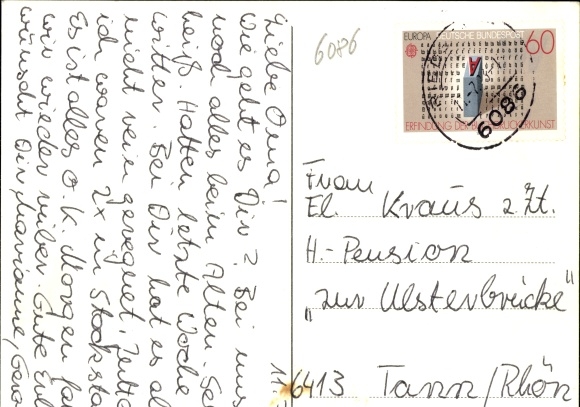 11.
Liebe Oma!
Wie geht es Dir? Bei uns
noch alles beim Alten. Sehr
heiß. Hatten letzte Woche
Bei Dir hat es
nicht geregnet. Jutta
ich waren 2x in Stocksta
Es ist alles O.K. Morgen fa
wir wieder rüber. Gute
wünscht Dir, Marianne,
6086
EUROPA DEUTSCHE BUNDESPOST 60
ERFINDUNG DER BUCHDRUCKERKUNST
6086
Frau
El. Kraus z. Zt.
H.-Pension
"zur Ulsterbrücke"
6413 Tann/Rhön